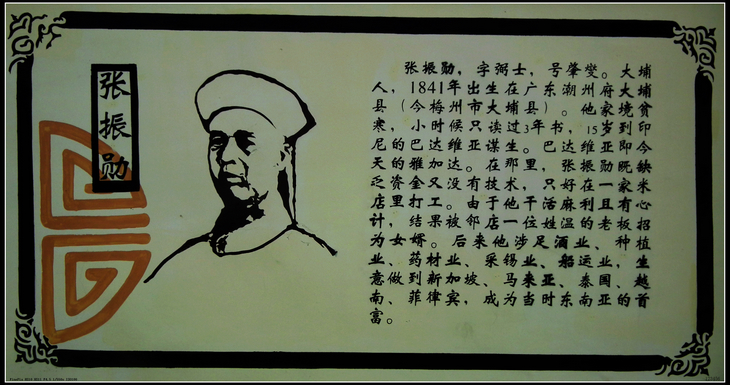 张振勋
张振勋，字弼士，号肇燮。大埔
人，1841年出生在广东潮州府大埔
县（今梅州市大埔县）。他家境贫
寒，小时候只读过3年书，15岁到印
尼的巴达维亚谋生。巴达维亚即今
天的雅加达。在那里，张振勋既缺
乏资金又没有技术，只好在一家米
店里打工。由于他干活麻利且有心
计，结果被邻店一位姓温的老板招
为女婿。后来他涉足酒业、种植
业、药材业、采锡业、船运业，生
意做到新加坡、马来亚、泰国、越
南、菲律宾，成为当时东南亚的首
富。